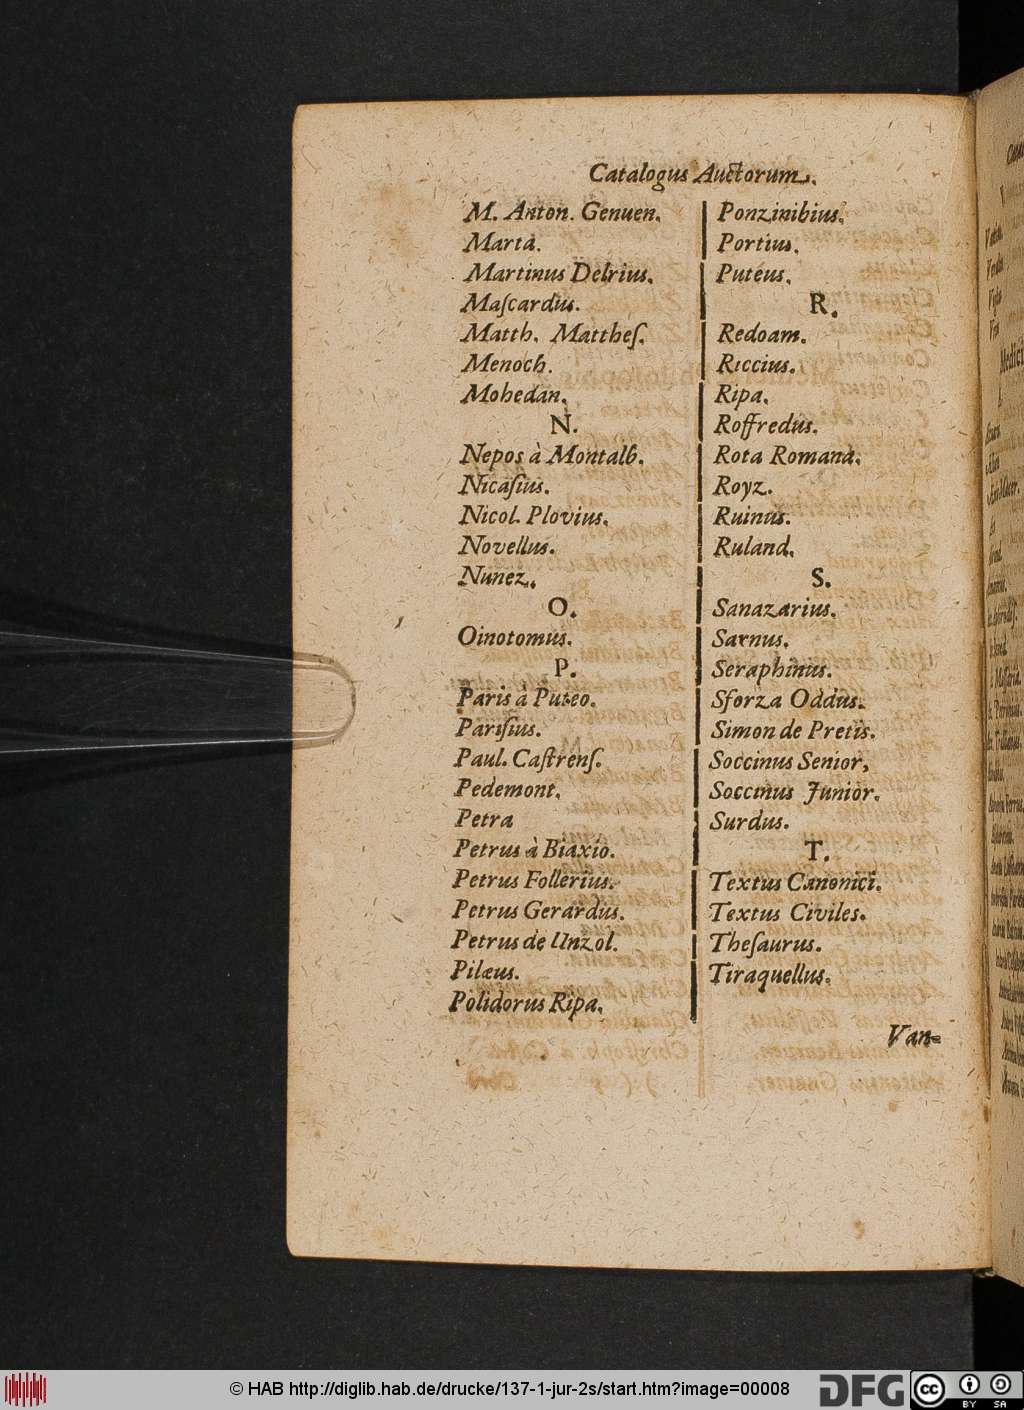 Catalogus Auctorum.
M. Anton. Genuen.
Marta.
Martinus Delrius.
Maſcardus.
Matth. Mattheſ.
Menoch.
Mohedan.
N.
Nepos à Montalb.
Nicaſius.
Nicol. Plovius.
Novellus.
Nunez.
O.
Oinotomus.
P.
Paris à Puteo.
Pariſius.
Paul. Caſtrenſ.
Pedemont.
Petra
Petrus à Biaxio.
Petrus Follerius.
Petrus Gerardus.
Petrus de Unzol.
Pilæus.
Polidorus Ripa.
Ponzinibius.
Portius.
Puteus.
R.
Redoam.
Riccius.
Ripa.
Roffredus.
Rota Romana.
Royz.
Ruinus.
Ruland.
S.
Sanazarius.
Sarnus.
Seraphinus.
Sforza Oddus.
Simon de Pretis.
Soccinus Senior,
Soccinus Junior.
Surdus.
T.
Textus Canonici.
Textus Civiles.
Theſaurus.
Tiraquellus.
Van-
© HAB http://diglib.hab.de/drucke/137-1-jur-2s/start.htm?image=00008
DFG
cc
BY SA